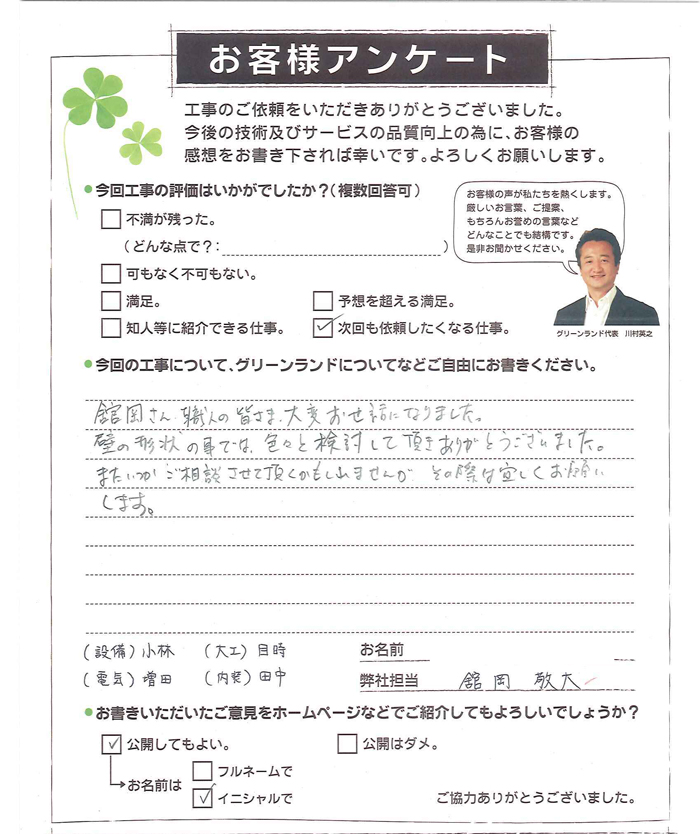 お客様アンケート
工事のご依頼をいただきありがとうございました。
今後の技術及びサービスの品質向上の為に、お客様の
感想をお書き下されば幸いです。よろしくお願いします。
●今回工事の評価はいかがでしたか？（複数回答可）
不満が残った。
（どんな点で？：　）
可もなく不可もない。
満足。
予想を超える満足。
知人等に紹介できる仕事。
次回も依頼したくなる仕事。
お客様の声が私たちを熱くします。
厳しいお言葉、ご提案、
もちろんお誉めの言葉など
どんなことでも結構です。
是非お聞かせください。
グリーンランド代表　川村英之
●今回の工事について、グリーンランドについてなどご自由にお書きください。
舘岡さん、職人の皆さま、大変お世話になりました。
壁の形状の事では、色々と検討して頂きありがとうございました。
またいつかご相談させて頂くかもしれませんが その際は宜しくお願い
します。
(設備) 小林　(大工) 目時
(電気) 増田　(内装) 田中
お名前
弊社担当　舘岡 敬大
●お書きいただいたご意見をホームページなどでご紹介してもよろしいでしょうか？
公開してもよい。
公開はダメ。
お名前は
フルネームで
イニシャルで
ご協力ありがとうございました。